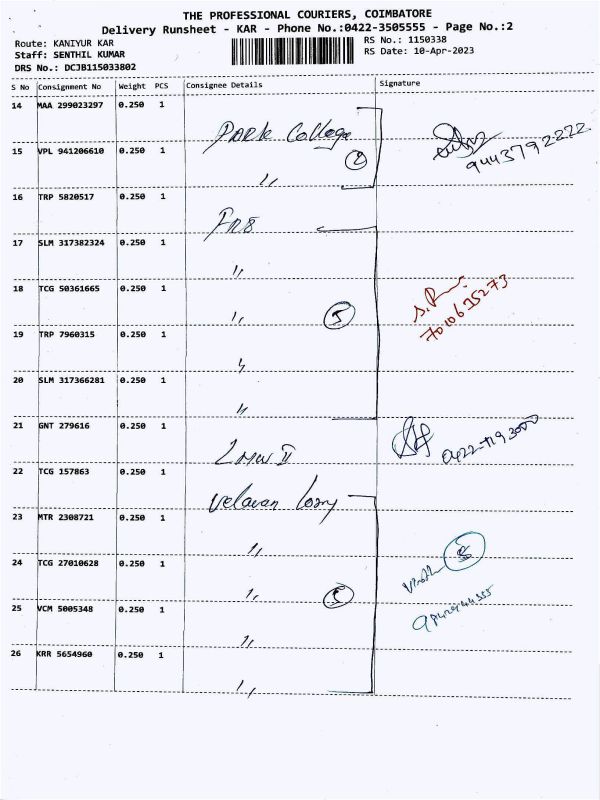 THE PROFESSIONAL COURIERS, COIMBATORE
Delivery Runsheet - KAR - Phone No.:0422-3505555 - Page No.:2
Route: KANIYUR KAR
RS No.: 1150338
Staff: SENTHIL KUMAR
RS Date: 10-Apr-2023
DRS No.: DCJB115033802
S No Consignment No Weight PCS Consignee Details Signature
14 MAA 299023297 0.250 1
Park College
9443792222
15 VPL 941206610 0.250 1
2
"
16 TRP 5820517 0.250 1
17 SLM 317382324 0.250 1
"
18 TCG 50361665 0.250 1
" 5
7010635273
19 TRP 7960315 0.250 1
"
20 SLM 317366281 0.250 1
"
21 GNT 279616 0.250 1
22 TCG 157863 0.250 1
Velavan
23 MTR 2308721 0.250 1
"
24 TCG 27010628 0.250 1
"
25 VCM 5005348 0.250 1
"
26 KRR 5654960 0.250 1
"